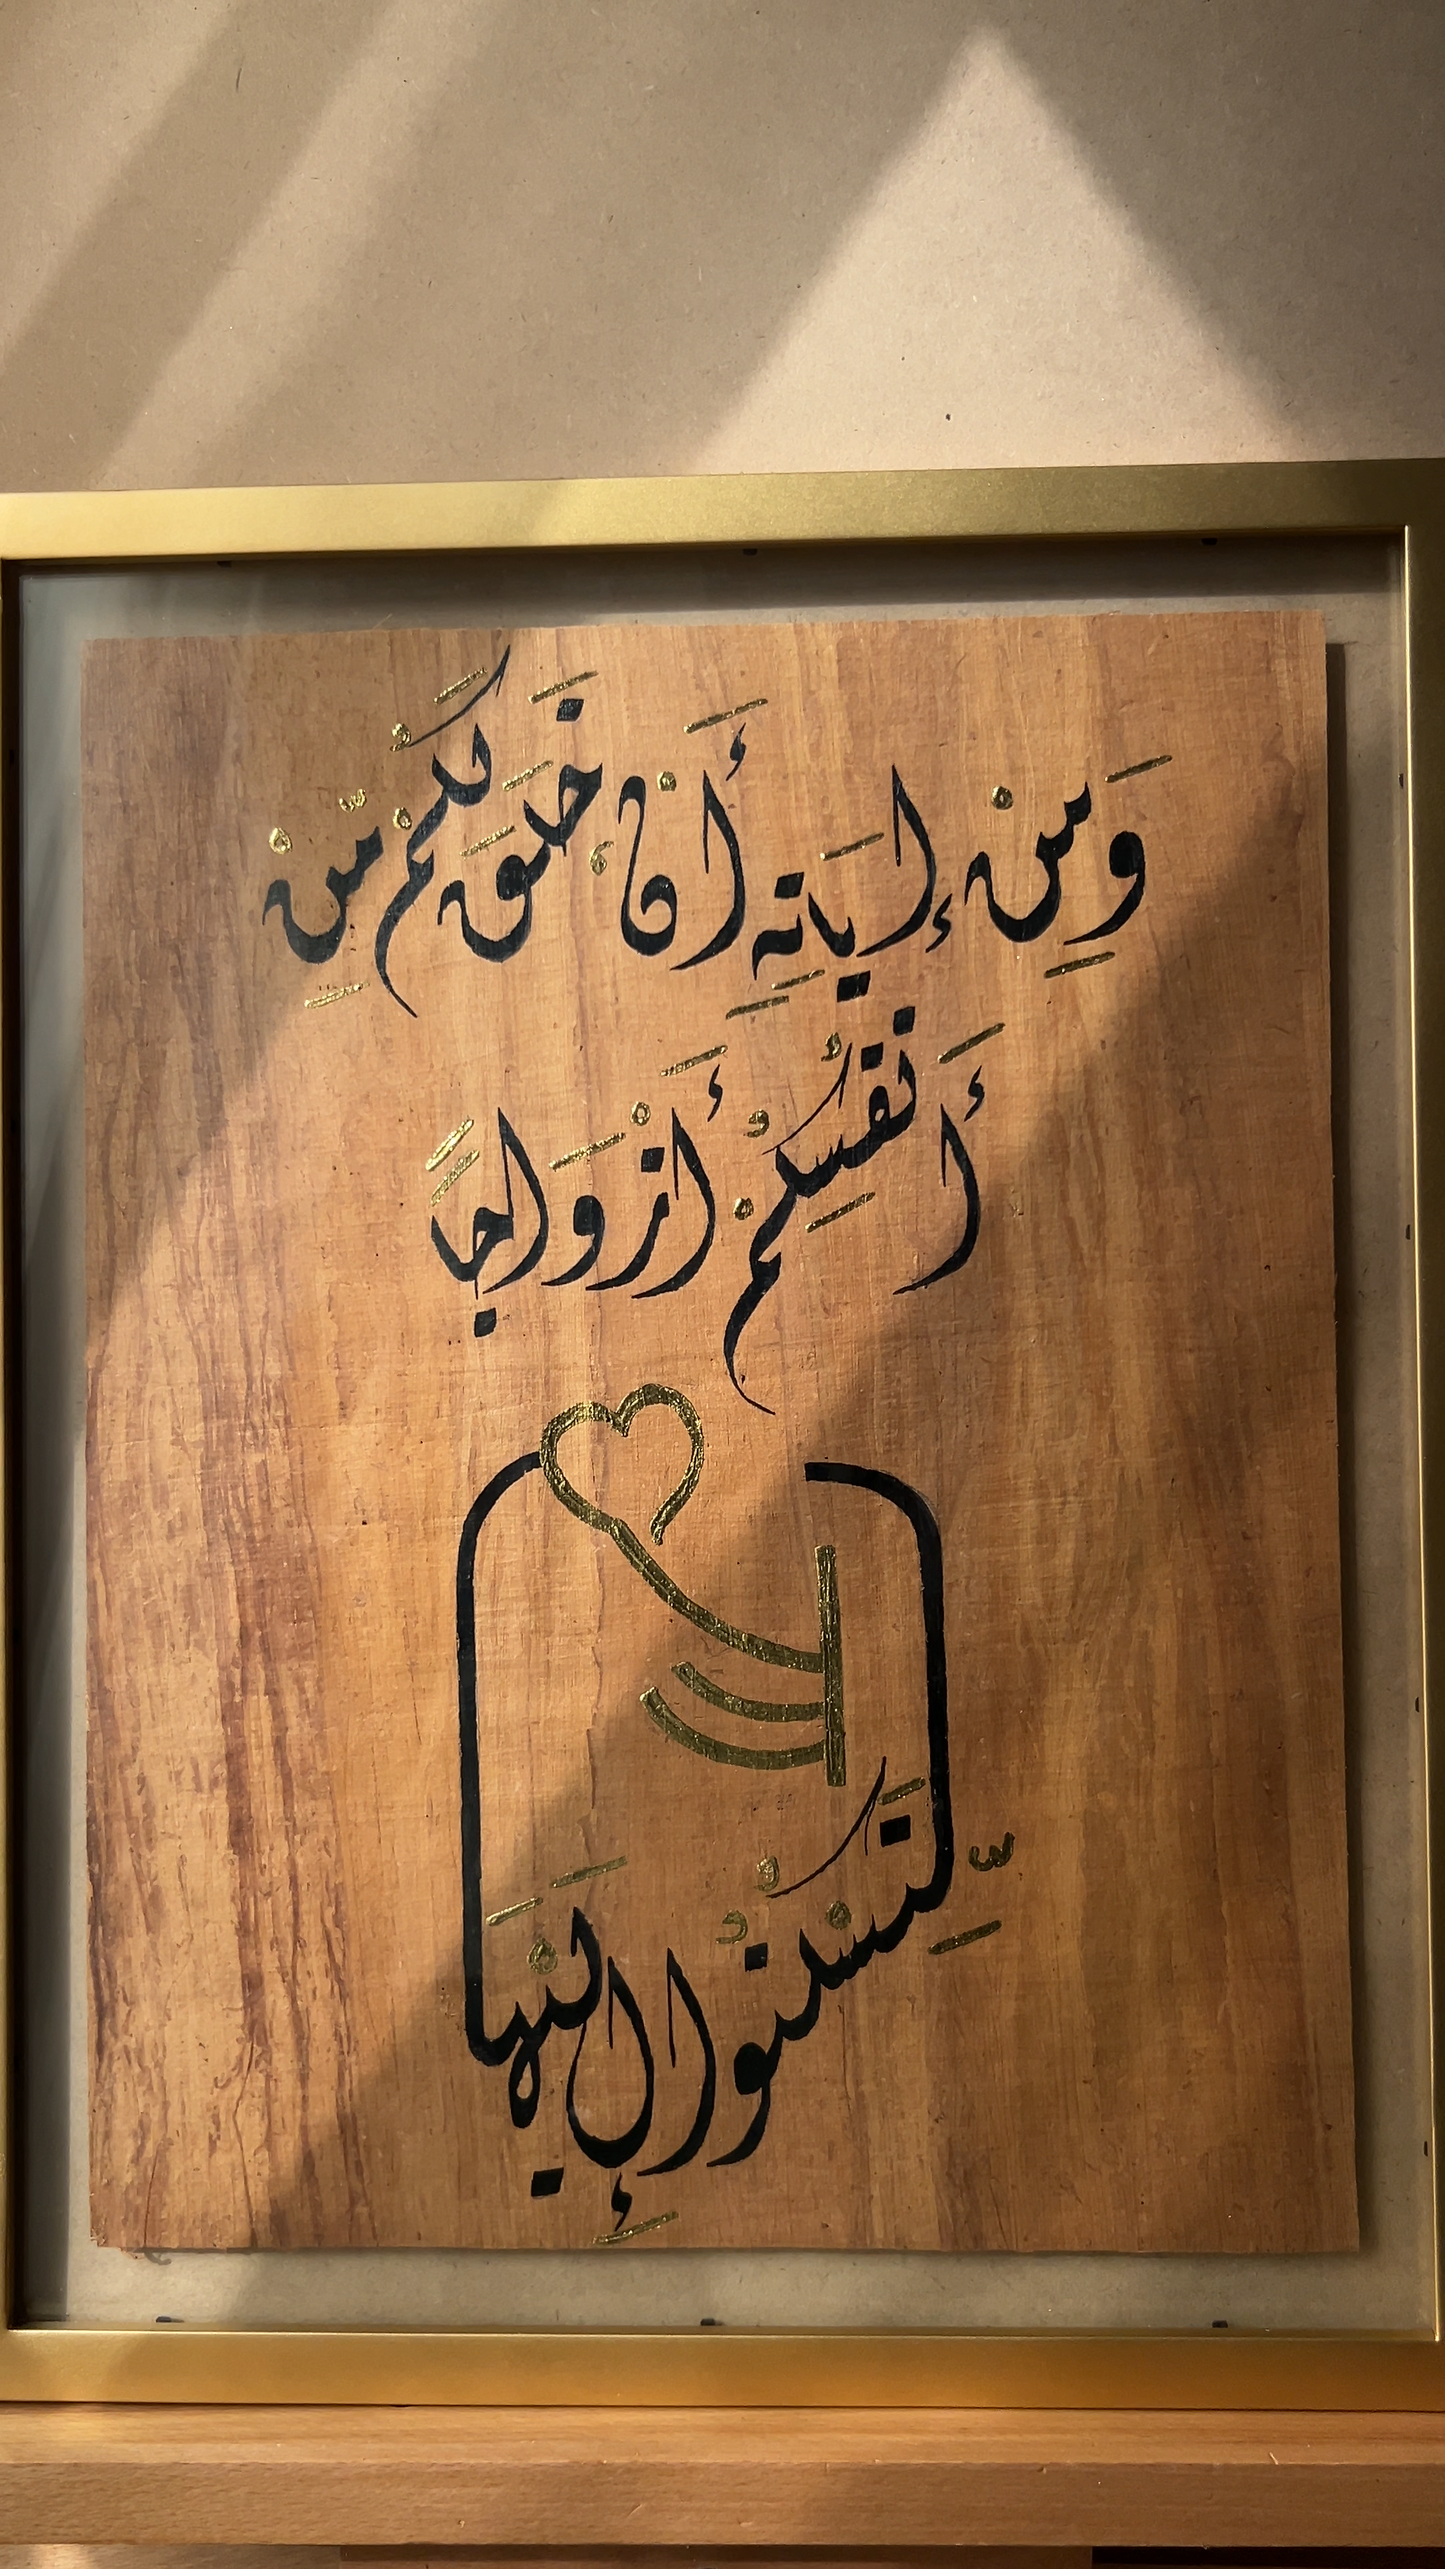 وَمِنْ إيَاتِهِ أَنْ خَلَقَ لَكُمْ مِّنْ
أَنفُسِكُمْ أَزْوَاجاً
لِّتَسْكُنُوا إِلَيْهَا